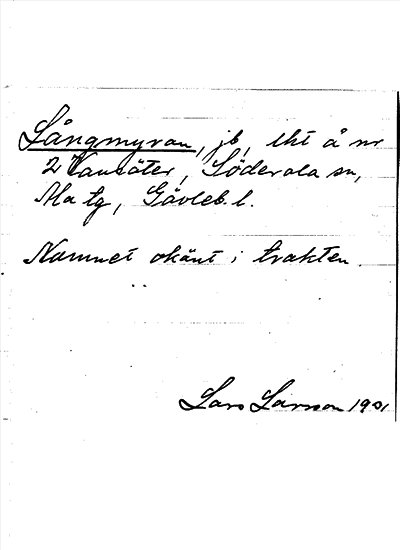 Långmyran, jb, lht å nr
2 Vansäter, Söderala sn,
Ma tg, Gävleb. l.
Namnet okänt i trakten.
Lars Larsson 1901